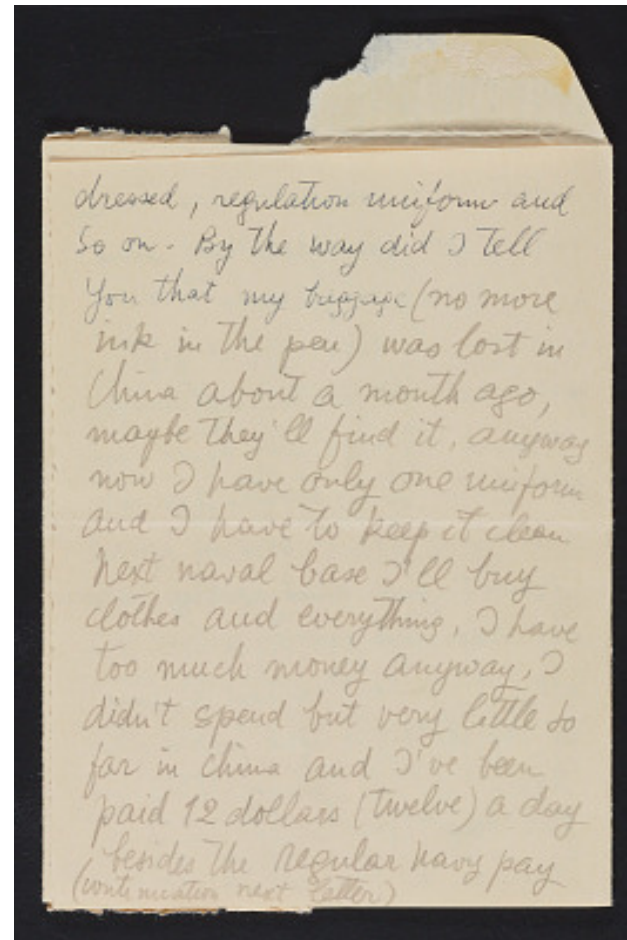 dressed, regulation uniform and
So on. By the way did I Tell
You that my baggage (no more
ink in the pen) was lost in
China about a month ago,
maybe They'll find it, anyway
now I have only one uniform
and I have To keep it clean
Next naval base I'll buy
clothes and everything, I have
too much money anyway, I
didn't spend but very little so
far in China and I've been
paid 12 dollars (twelve) a day
besides The regular Navy pay
(continuation next letter)